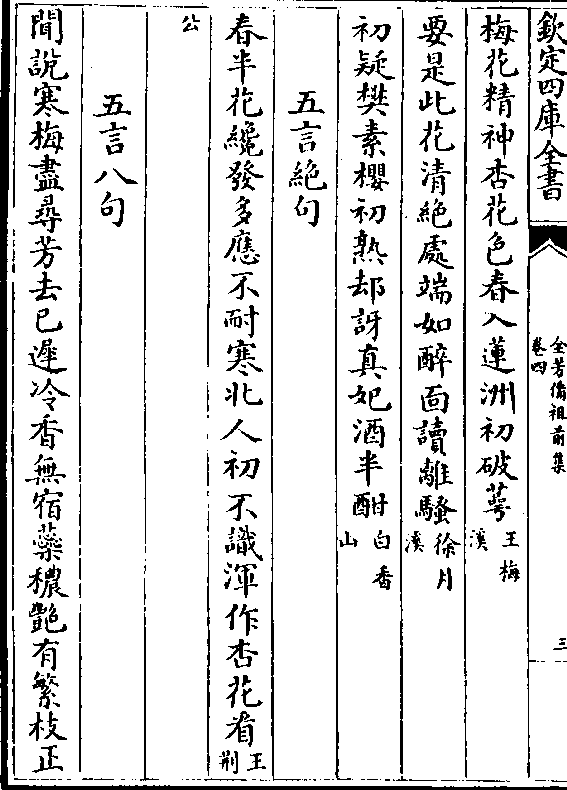 欽定四庫全書
全芳備祖前集
卷四
三
梅花精神杏花色春入蓮洲初破萼王梅
溪
要是此花清絶處端如醉面讀離騷徐月
溪
初疑樊素櫻初熟却訝真妃酒半酣白香
山
五言絶句
春半花纔發多應不耐寒北人初不識渾作杏花㸔王荆
公
五言八句
聞說寒梅盡尋芳去已遲冷香無宿蘂穠艶有繁枝正